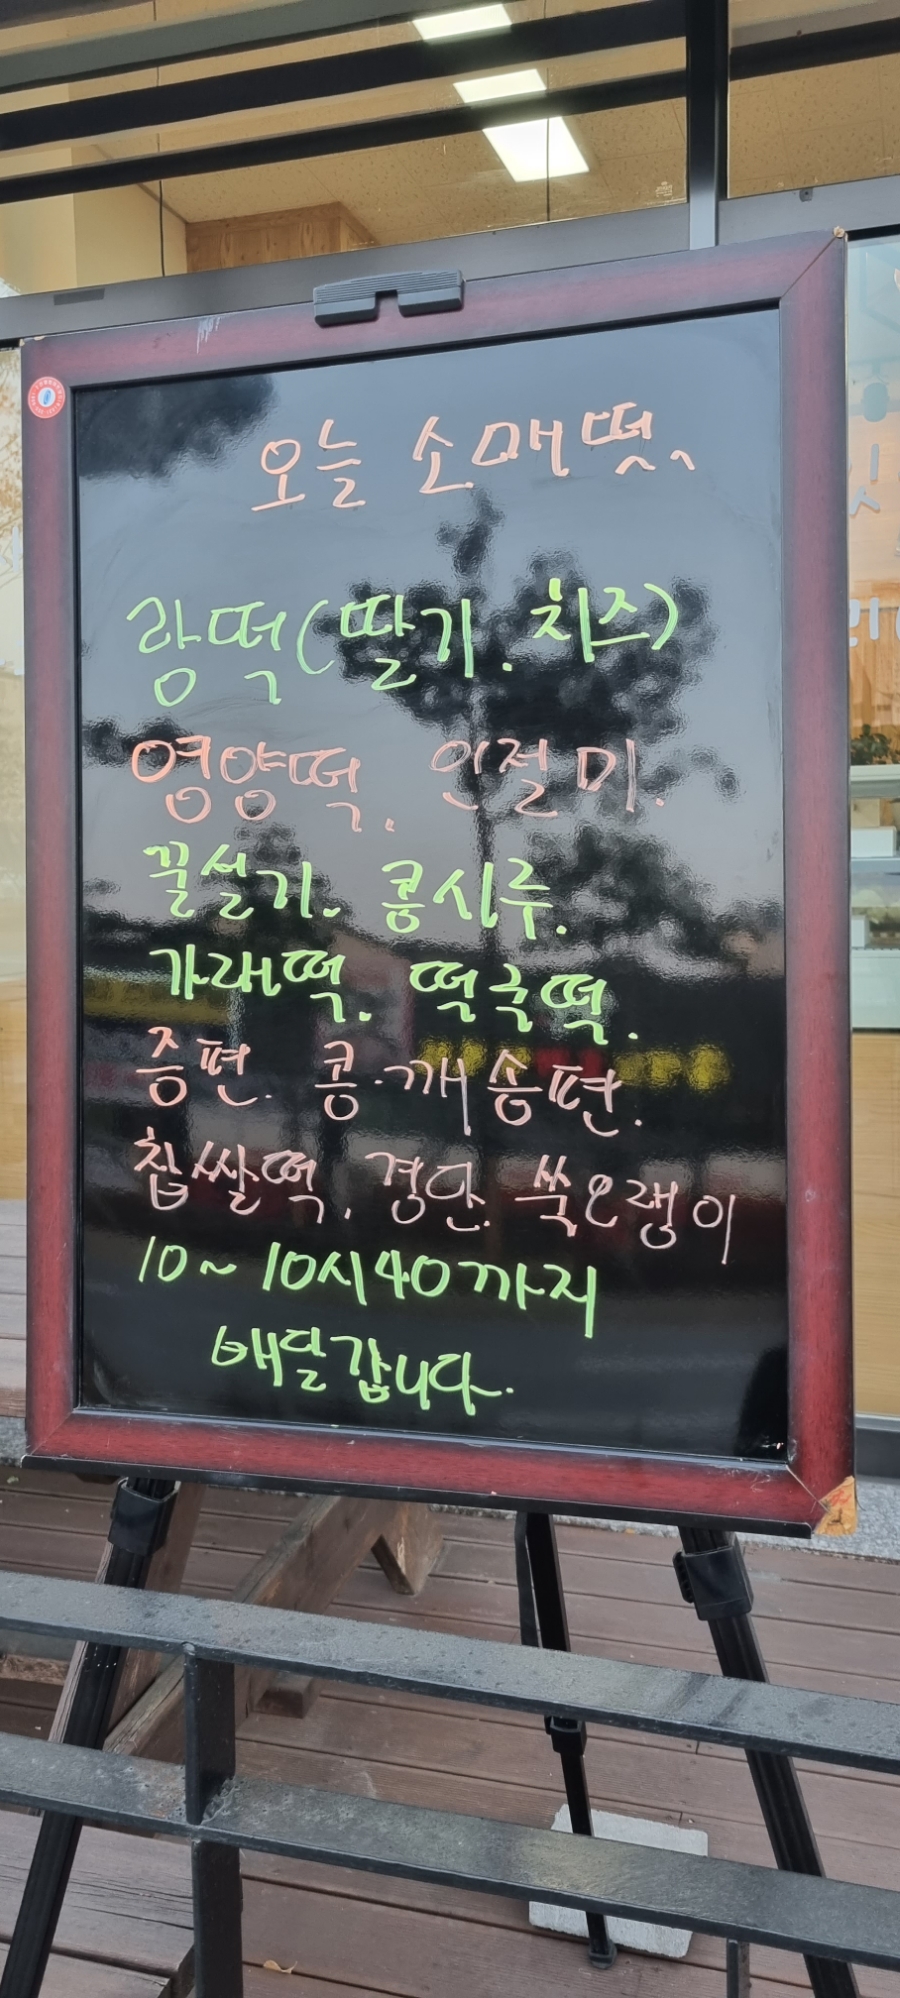 오늘 소매떡^^
람떡(딸기. 치즈)
영양떡. 인절미.
꿀설기. 콩시루.
가래떡. 떡국떡.
증편. 콩.깨송편.
찹쌀떡. 경단. 쑥오랭이
10~10시40까지
배달갑니다.